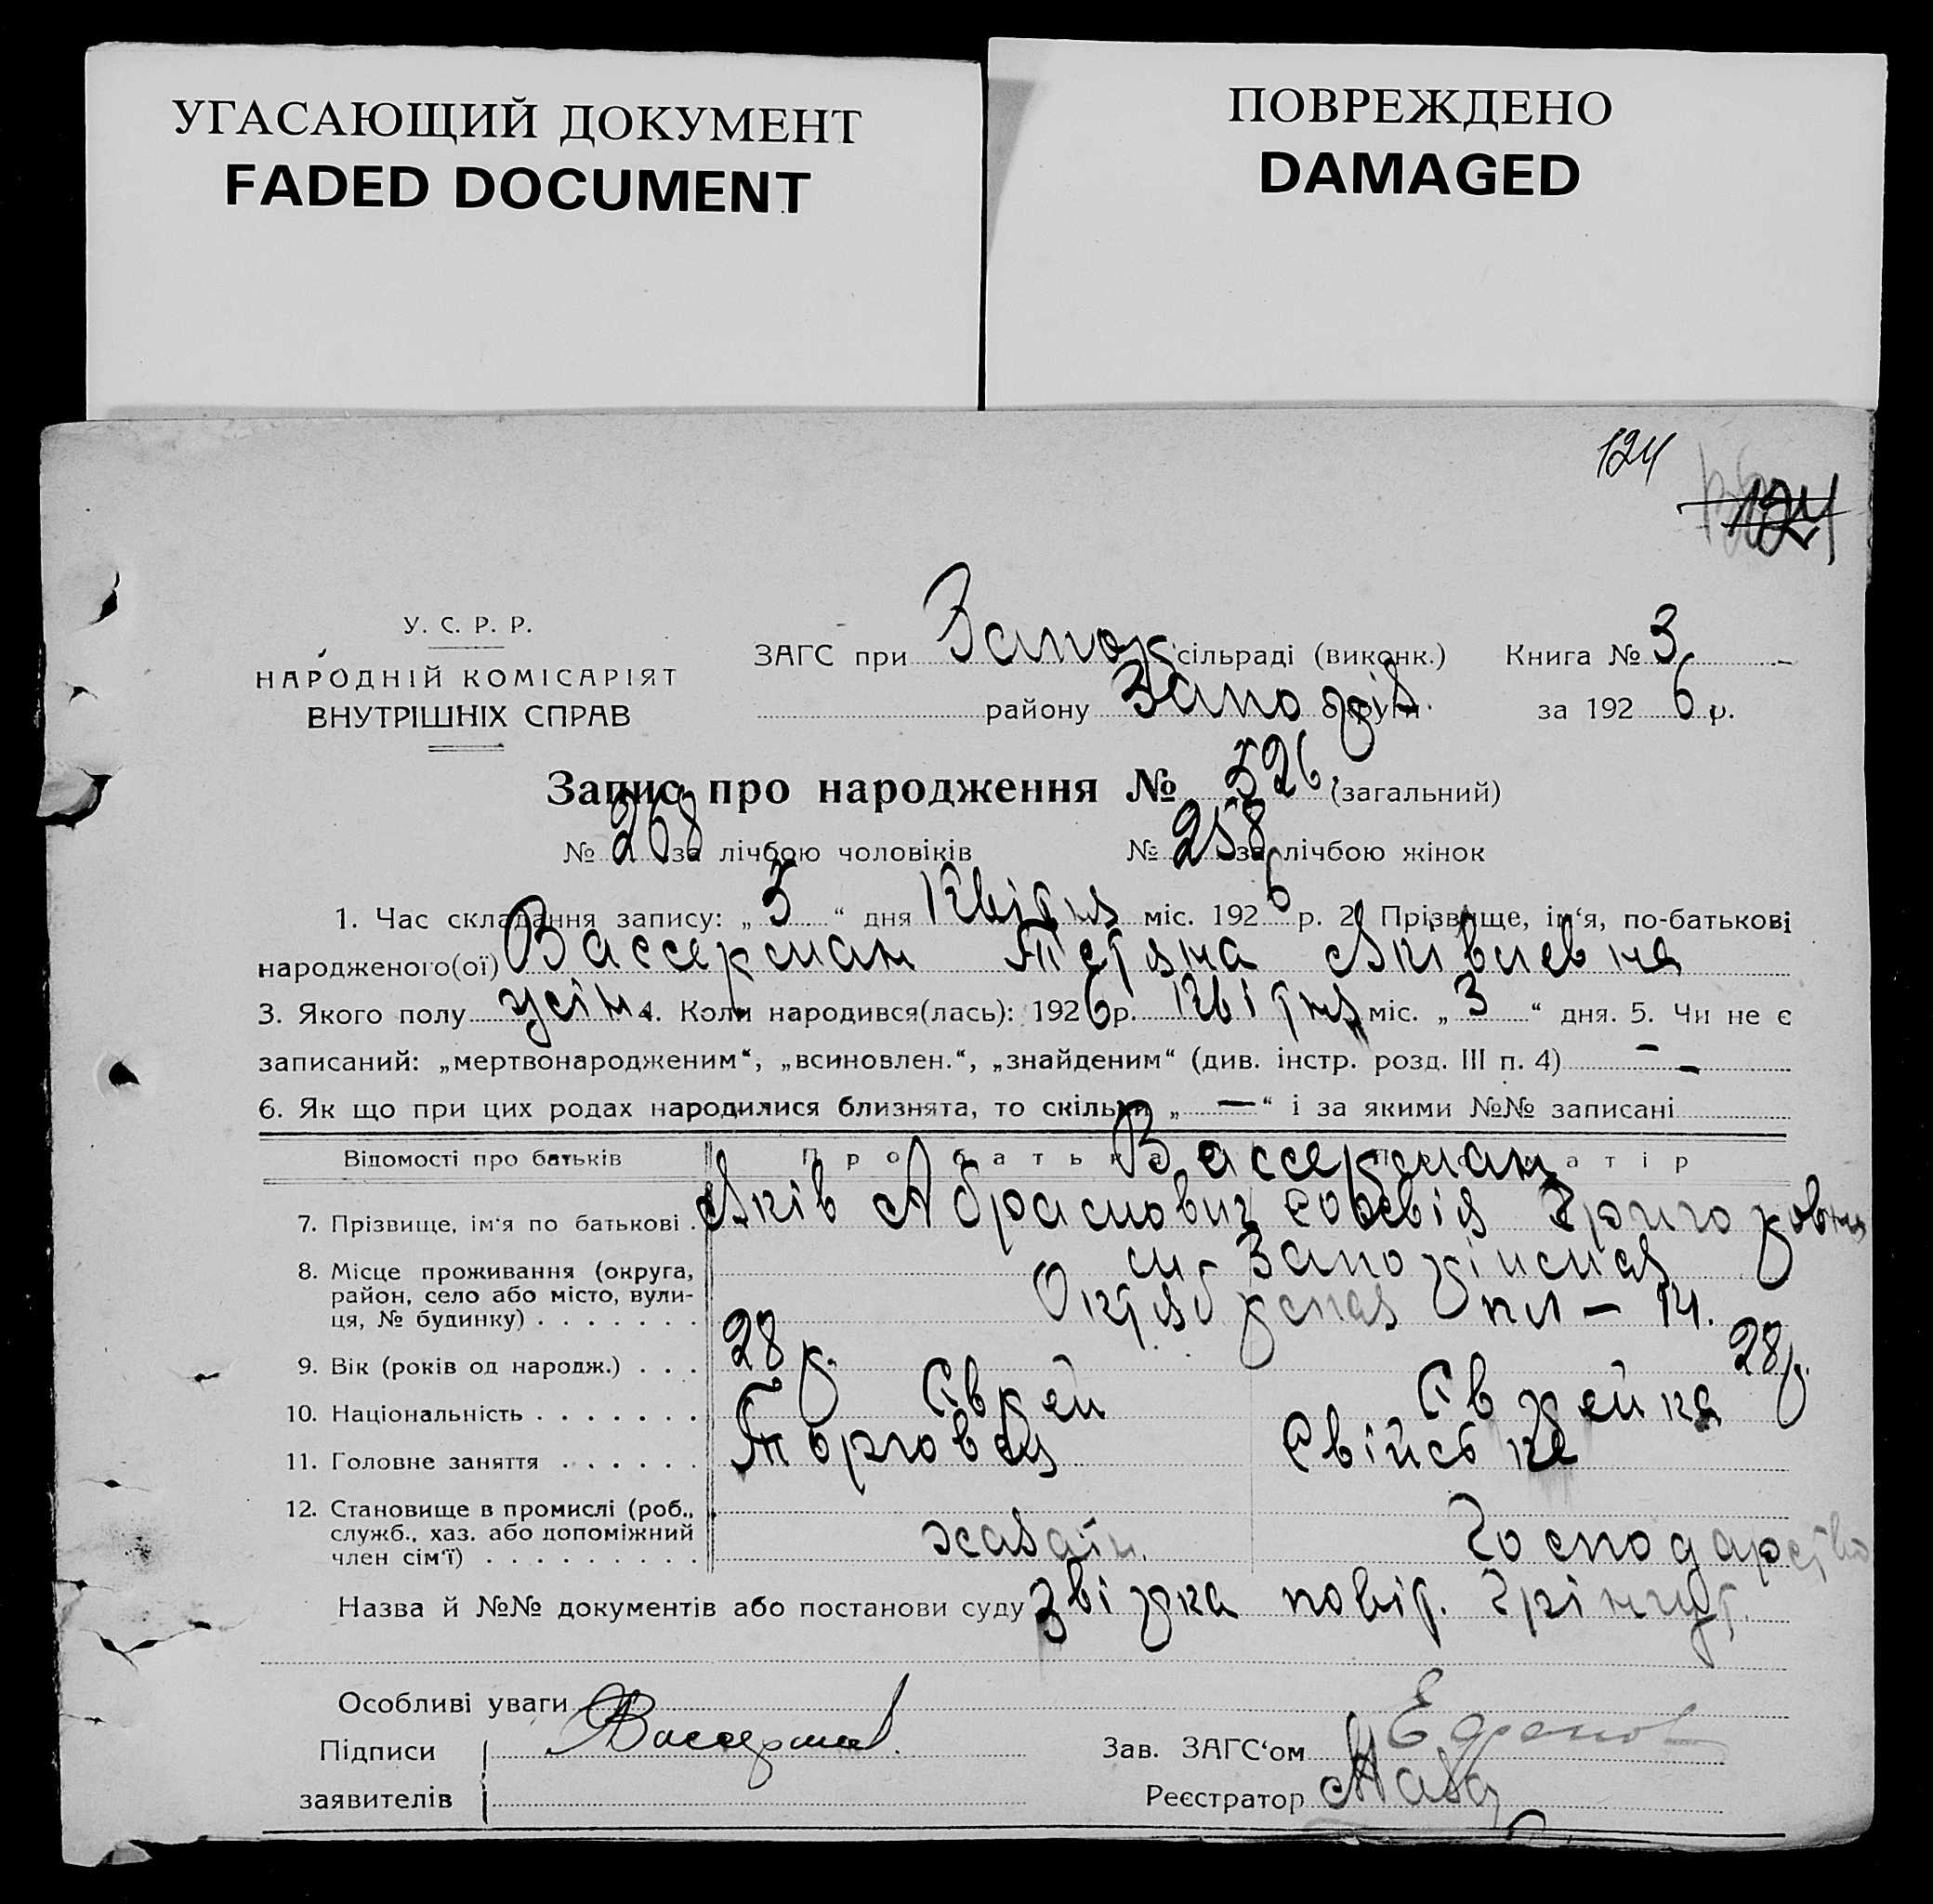 УГАСАЮЩИЙ ДОКУМЕНТ
FADED DOCUMENT
ПОВРЕЖДЕНО
DAMAGED
124
124
У. С. Р. Р.
НАРОДНІЙ КОМІСАРІЯТ
ВНУТРІШНІХ СПРАВ
ЗАГС при Запор сільраді (виконк.) Книга № 3
району Запоріз округи за 1926 р.
Запис про народження № 526 (загальний)
№ 268 за лічбою чоловіків № 258 за лічбою жінок
1. Час складання запису: „ 5 “ дня Квітня міс. 1926 р. 2. Прізвище, ім‘я, по-батькові
народженого(ої) Вассерман Тетяна Яківлевна
3. Якого полу 4. Коли народився(лась): 1926 р. Квітня міс. „ 3 “ дня. 5. Чи не є
записаний: „мертвонародженим“, „всиновлен.“, „знайденим“ (див. інстр. розд. III п. 4) —
6. Як що при цих родах народилися близнята, то скільки „ — “ і за якими №№ записані
Відомості про батьків Про батька Про матір
Вассерман
7. Прізвище, ім‘я по батькові . Яків Абрамович Григоровна
8. Місце проживання (округа, район, село або місто, вулиця, № будинку) . . . . . . .
м. Запоріжжя
пл – 14.
9. Вік (років од народж.) . . . 28 р. 28 р.
10. Національність . . . . . . . Єврей Єврейка
11. Головне заняття . . . . . . Торговец Свійське
12. Становище в промислі (роб., служб., хаз. або допоміжний член сім‘ї) . . . . . . . . . хазяїн. Господарство
Назва й №№ документів або постанови суду
Особливі уваги
Підписи заявителів Вассерман
Зав. ЗАГС‘ом
Реєстратор